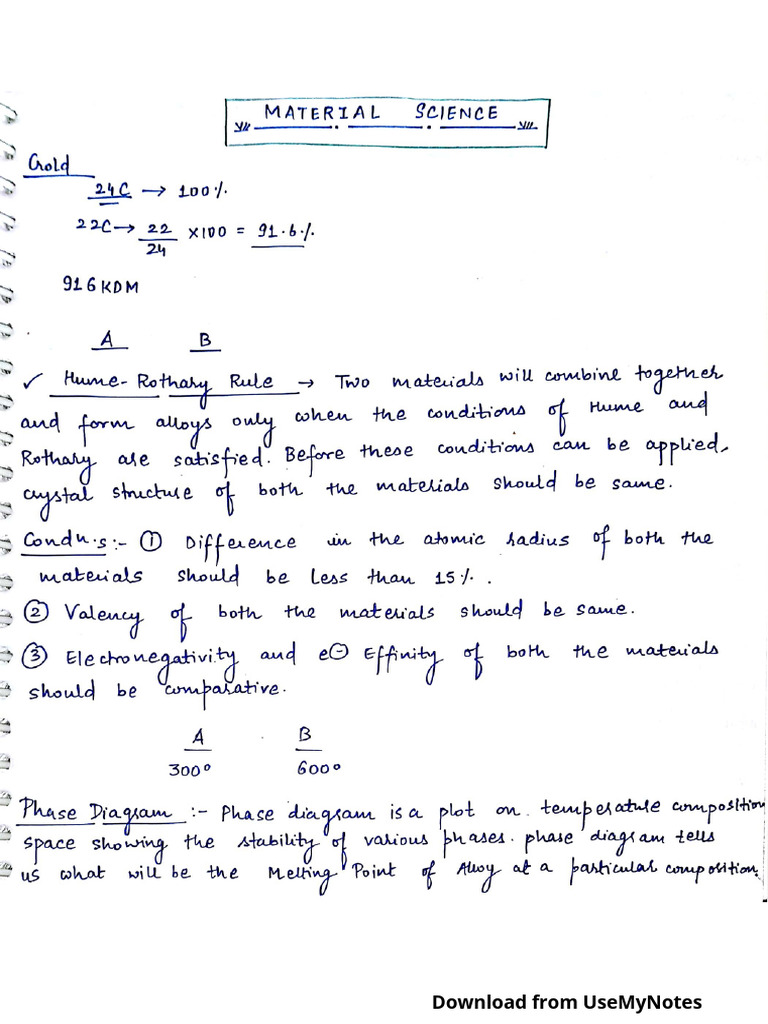 MATERIAL SCIENCE
Gold
24C → 100%
22C → 22/24 ×100 = 91.6%
916 KDM
A B
✓ Hume-Rothary Rule → Two materials will combine together
and form alloys only when the conditions of Hume and
Rothary are satisfied. Before these conditions can be applied,
crystal structure of both the materials should be same.
Condn.s:- ① Difference in the atomic radius of both the
materials should be less than 15%.
② Valency of both the materials should be same.
③ Electronegativity and e⊖ Effinity of both the materials
should be comparative.
A B
300° 600°
Phase Diagram :- Phase diagram is a plot on temperature composition
space showing the stability of various phases. phase diagram tells
us what will be the Melting Point of Alloy at a particular composition.
Download from UseMyNotes